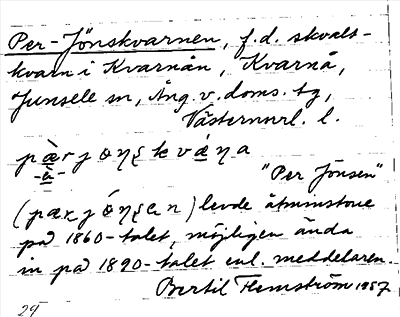 Per-Jönskvarnen, f.d. skvalt-
kvarn i Kvarnån, Kvarnå,
Junsele sn, Ång. v. doms. tg,
Västernorrl. l.
"Per Jönsen"
levde åtminstone
på 1860-talet, möjligen ända
in på 1890-talet enl. meddelaren.
Bertil Flemström 1957
29